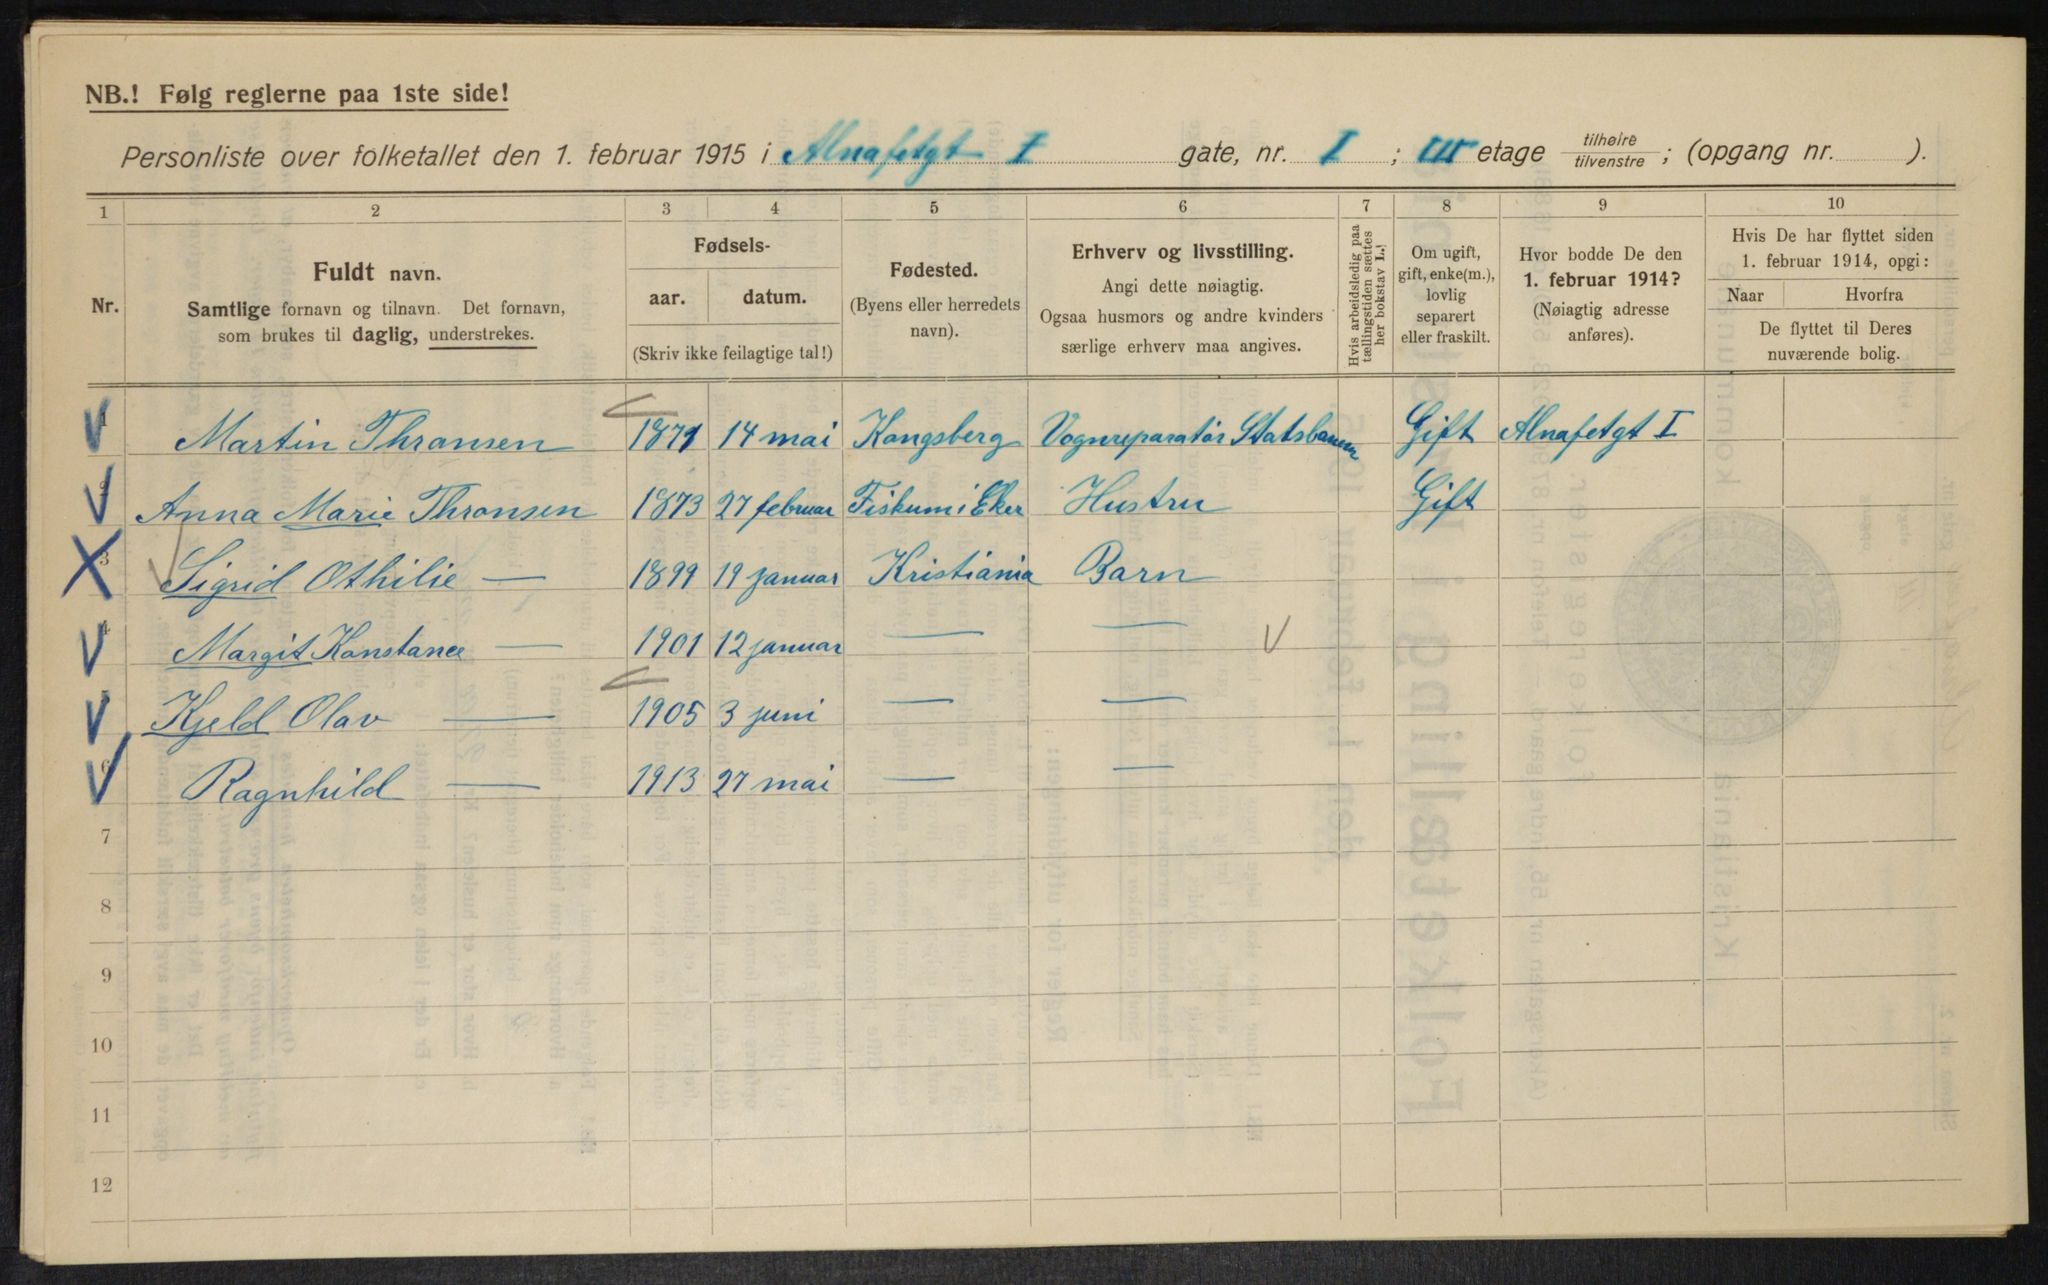 NB.! Følg reglerne paa 1ste side!
Personliste over folketallet den 1. februar 1915 i Alnafetgt I gate, nr. I ; III etage tilhøire tilvenstre ; (opgang nr. ).
1 2 3 4 5 6 7 8 9 10
Nr.
Fuldt navn.
Samtlige fornavn og tilnavn. Det fornavn,
som brukes til daglig, understrekes.
Fødsels-
aar. datum.
(Skriv ikke feilagtige tal!)
Fødested.
(Byens eller herredets
navn).
Erhverv og livsstilling.
Angi dette nøiagtig.
Ogsaa husmors og andre kvinders
særlige erhverv maa angives.
Hvis arbeidsledig paa
tællingstiden sættes
her bokstav L.!
Om ugift,
gift, enke(m.),
lovlig
separert
eller fraskilt.
Hvor bodde De den
1. februar 1914?
(Nøiagtig adresse
anføres).
Hvis De har flyttet siden
1. februar 1914, opgi:
Naar Hvorfra
De flyttet til Deres
nuværende bolig.
1 Martin Thransen 1871 14 mai Kongsberg Vognreparatør Statsbanen Gift Alnafetgt I
2 Anna Marie Thronsen 1873 27 februar Fiskum i Eker Hustru Gift
3 Sigrid Othilie — 1899 19 januar Kristiania Barn
4 Margit Konstance — 1901 12 januar — —
5 Kjeld Olav — 1905 3 juni — —
6 Ragnhild — 1913 27 mai — —
7
8
9
10
11
12